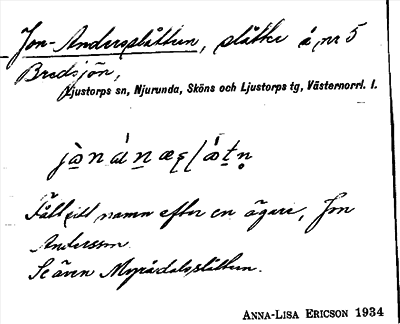 Jon-Andersslåtten, slåtte å nr 5
Bredsjön,
Ljustorps sn, Njurunda, Sköns och Ljustorps tg, Västernorrl. l.
Fått sitt namn efter en ägare, Jon
Andersson.
Se även Myrådalsslåtten.
ANNA-LISA ERICSON 1934